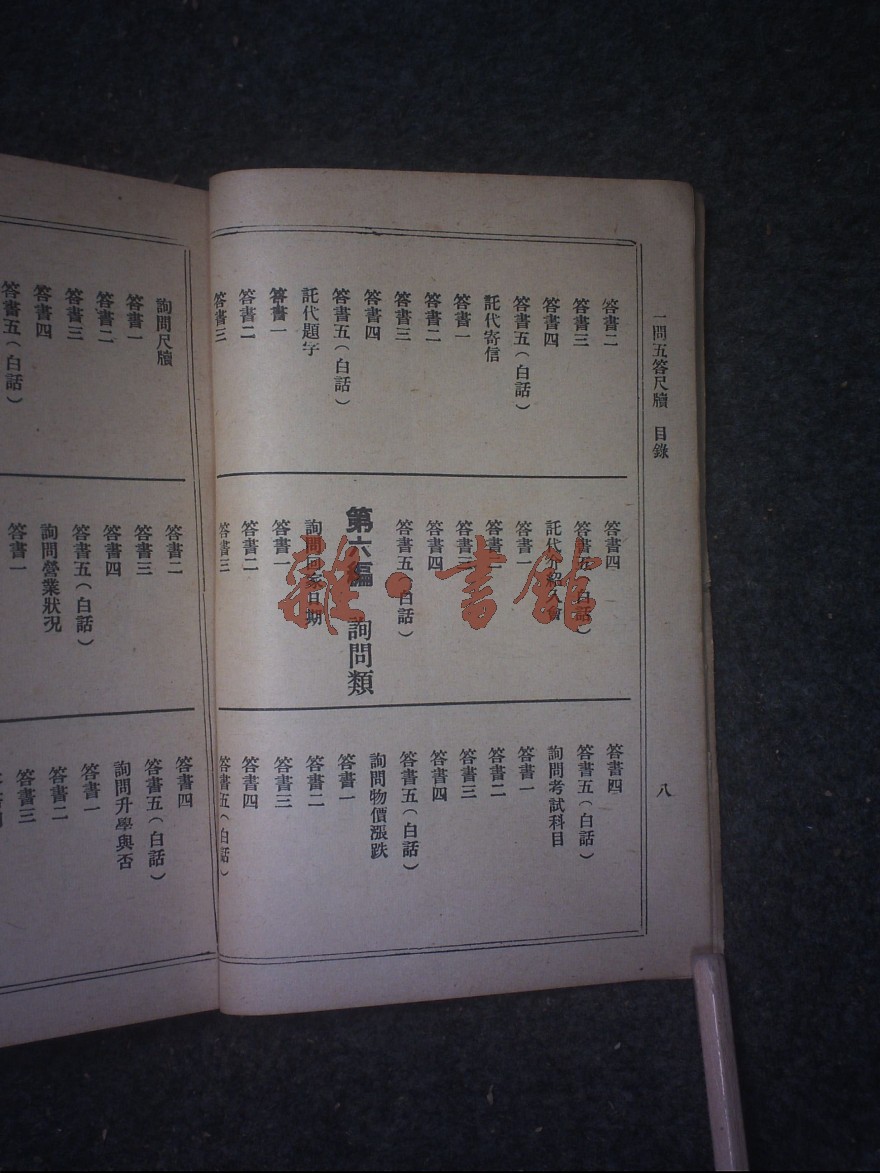 一問五答尺牘 目錄 八
答書二
答書三
答書四
答書五（白話）
託代寄信
答書一
答書二
答書三
答書四
答書五（白話）
託代題字
答書一
答書二
答書三
答書四
答書五（白話）
託代介紹入會
答書一
答書二
答書三
答書四
答書五（白話）
第六編 詢問類
詢問回家日期
答書一
答書二
答書三
答書四
答書五（白話）
詢問考試科目
答書一
答書二
答書三
答書四
答書五（白話）
詢問物價漲跌
答書一
答書二
答書三
答書四
答書五（白話）
詢問尺牘
答書一
答書二
答書三
答書四
答書五（白話）
答書二
答書三
答書四
答書五（白話）
詢問營業狀況
答書一
答書四
答書五（白話）
詢問升學與否
答書一
答書二
答書三
雜·書館